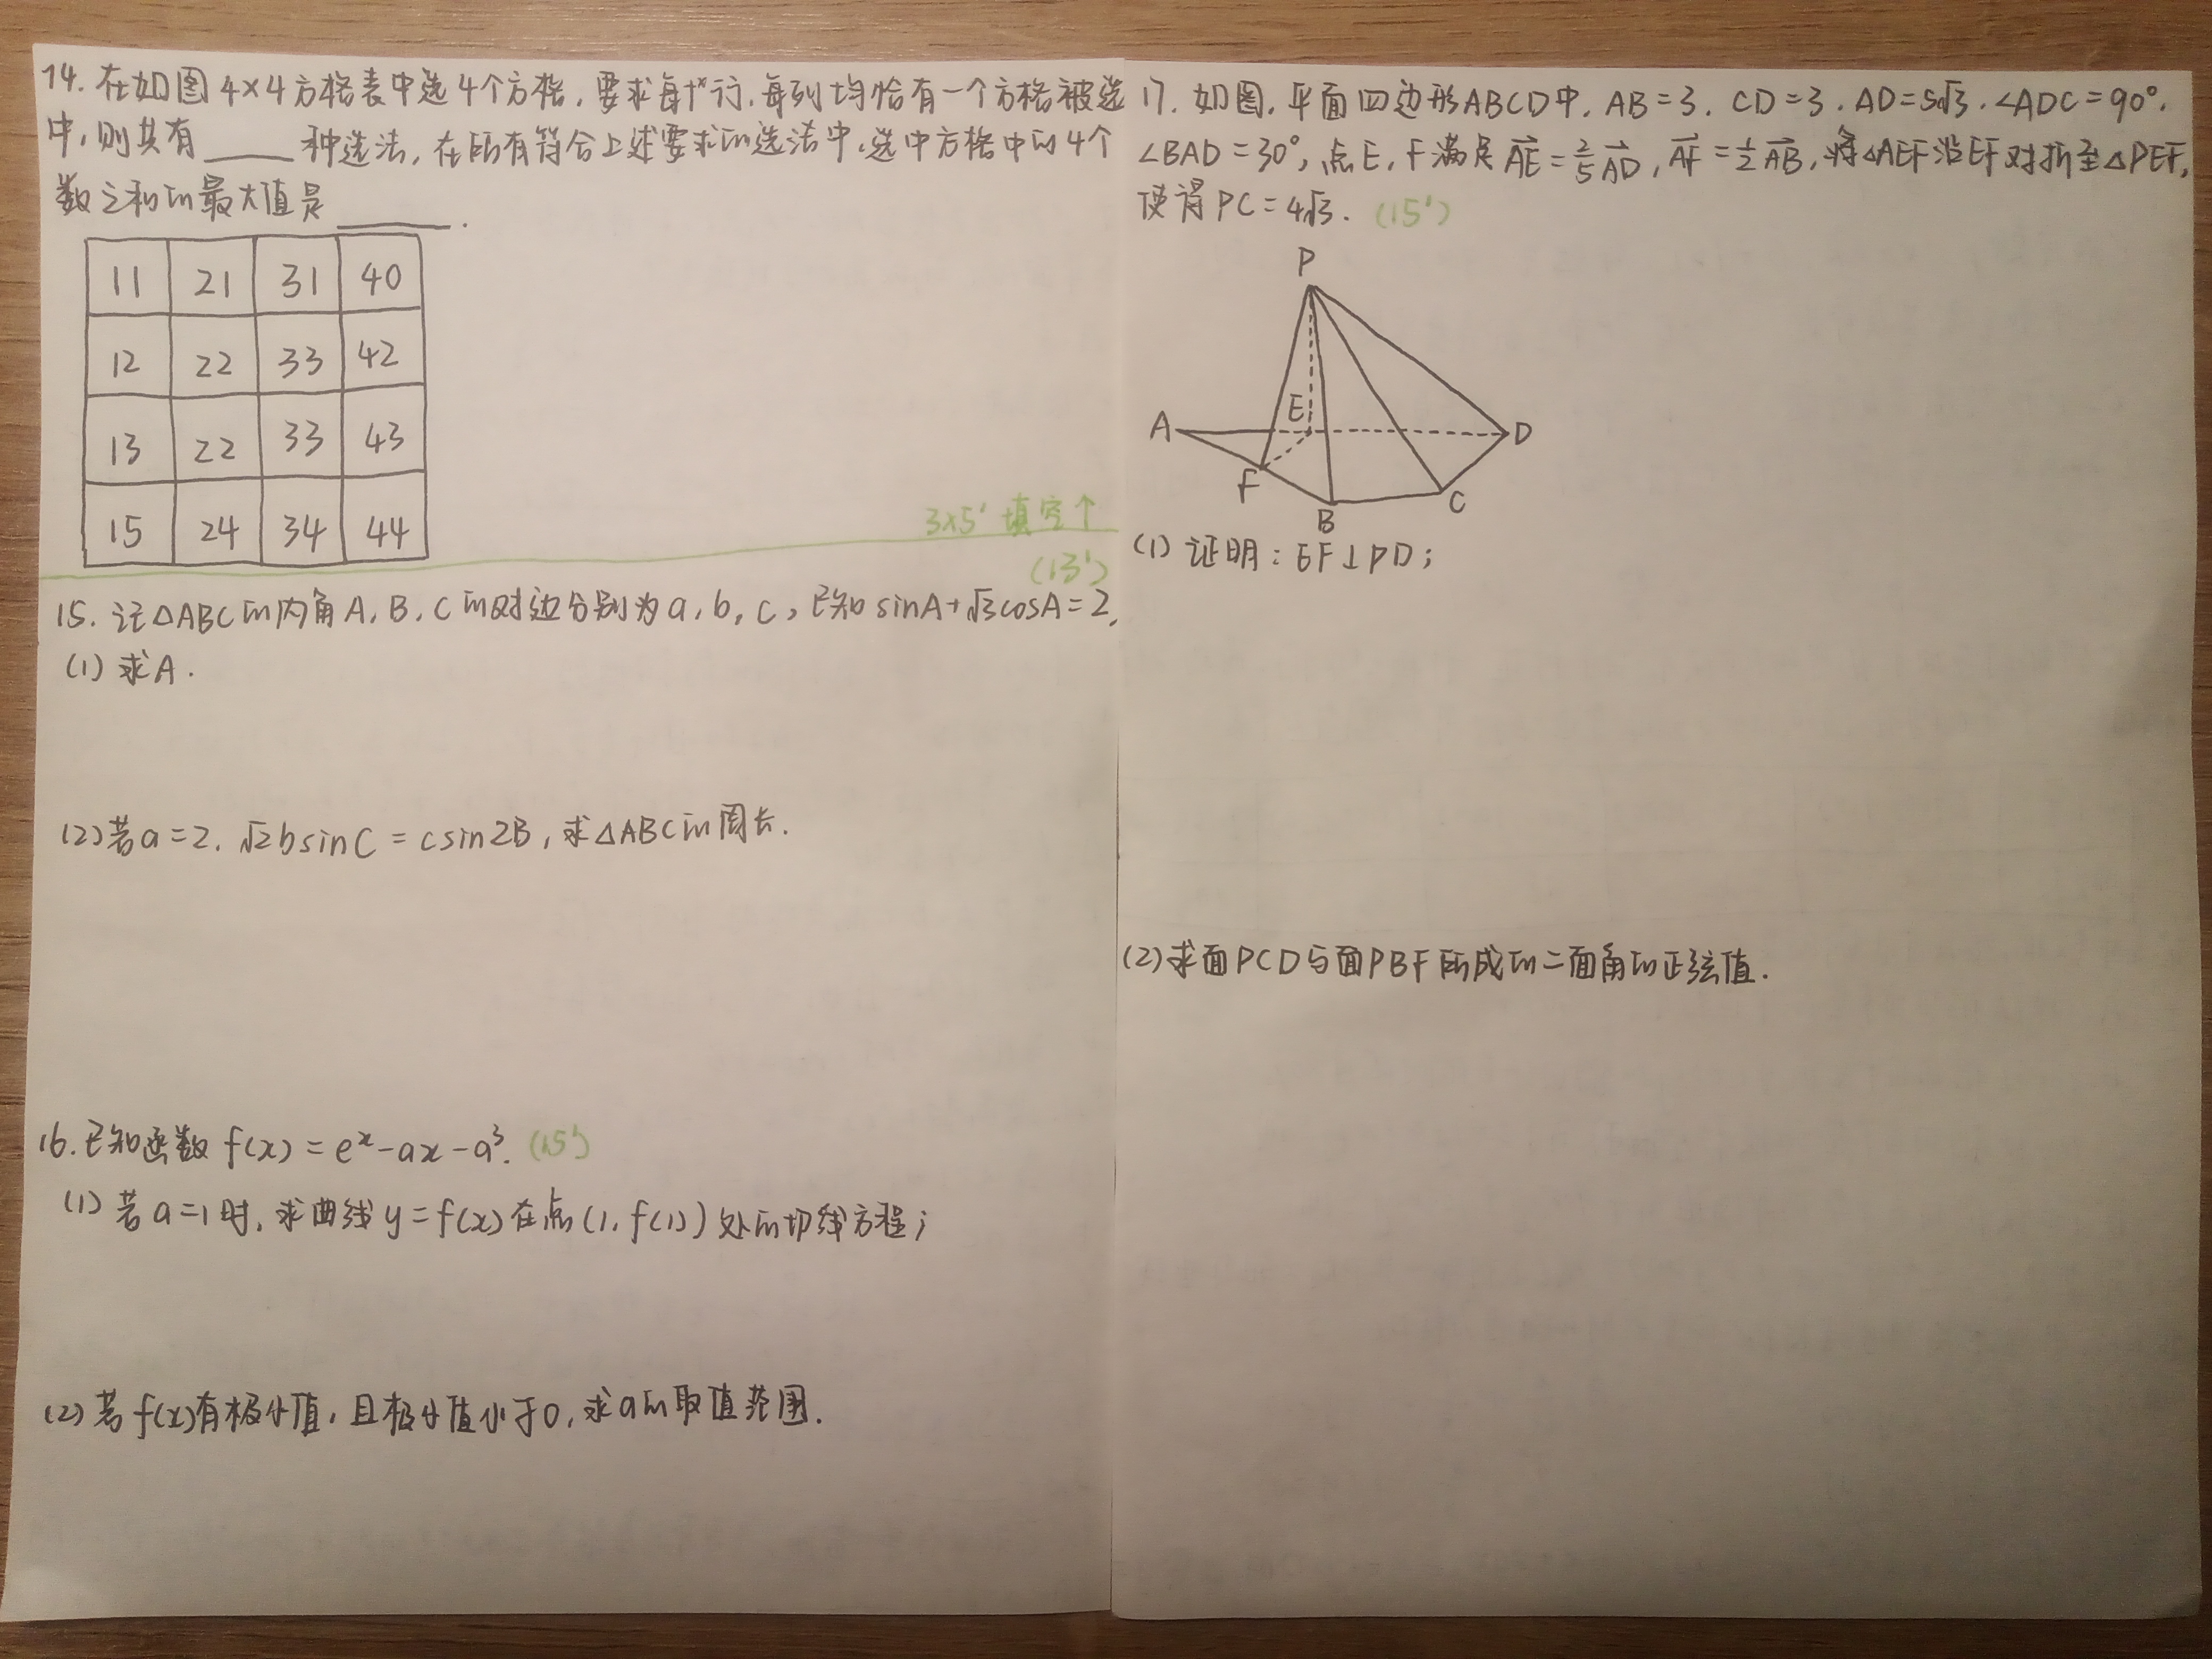 14. 在如图4×4方格表中选4个方格,要求每行,每列均恰有一个方格被选
中,则共有____种选法,在所有符合上述要求的选法中,选中方格中的4个
数之和的最大值是____.
11 21 31 40
12 22 33 42
13 22 33 43
15 24 34 44
3×5' 填空↑
(13')
15. 记△ABC的内角A, B, C的对边分别为a, b, c, 已知 sinA+√3cosA=2,
(1) 求A.
(2)若a=2. √2bsinC = csin2B, 求△ABC的周长.
16.已知函数 f(x) = e^x-ax-a³. (15')
(1) 若a=1时, 求曲线y=f(x)在点(1, f(1))处的切线方程;
(2) 若f(x)有极小值, 且极小值小于0, 求a的取值范围.
17. 如图, 平面四边形ABCD中, AB=3. CD=3. AD=5√3. ∠ADC=90°.
∠BAD=30°, 点E, F满足 AE→=2/5 AD→, AF→=1/2 AB→, 将△AEF沿EF对折至△PEF,
使得PC=4√3. (15')
P
A
E
D
F
B
C
(1) 证明: EF⊥PD;
(2)求面PCD与面PBF所成的二面角的正弦值.